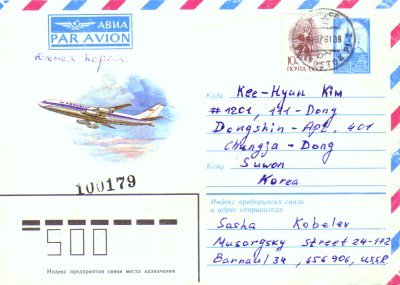 АВИА
PAR AVION
Южная Корея
10к
ПОЧТА СССР
Куда Kee-Hyun Kim
#1201, 111-Dong
Dongshin-Apt, 401
Chungja-Dong
Кому Suwon
Korea
100179
Индекс предприятия связи
и адрес отправителя
Sasha Kobelev
Musorgsky Street 24-112
Barnaul 34, 656906, USSR
500
Индекс предприятия связи места назначения